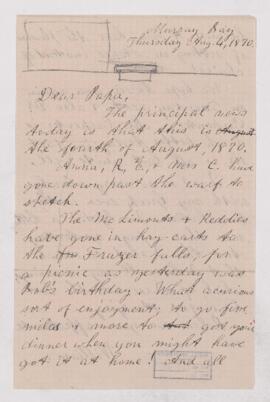 Murray Bay
Thursday Aug. 4, 1870.
Dear Papa,
The principal news
today is that this is August
the fourth of August, 1870.
Annie, R, E, & Mrs C. had
gone down past the warf to
sketch.
The McLimonts & Reddies
have gone in hay carts to
the Frazer falls, for
a picnic as yesterday was
Rob's birthday. What a curious
sort of enjoyment; to go five
miles & more to got your
dinner when you might have
got it at home! And all